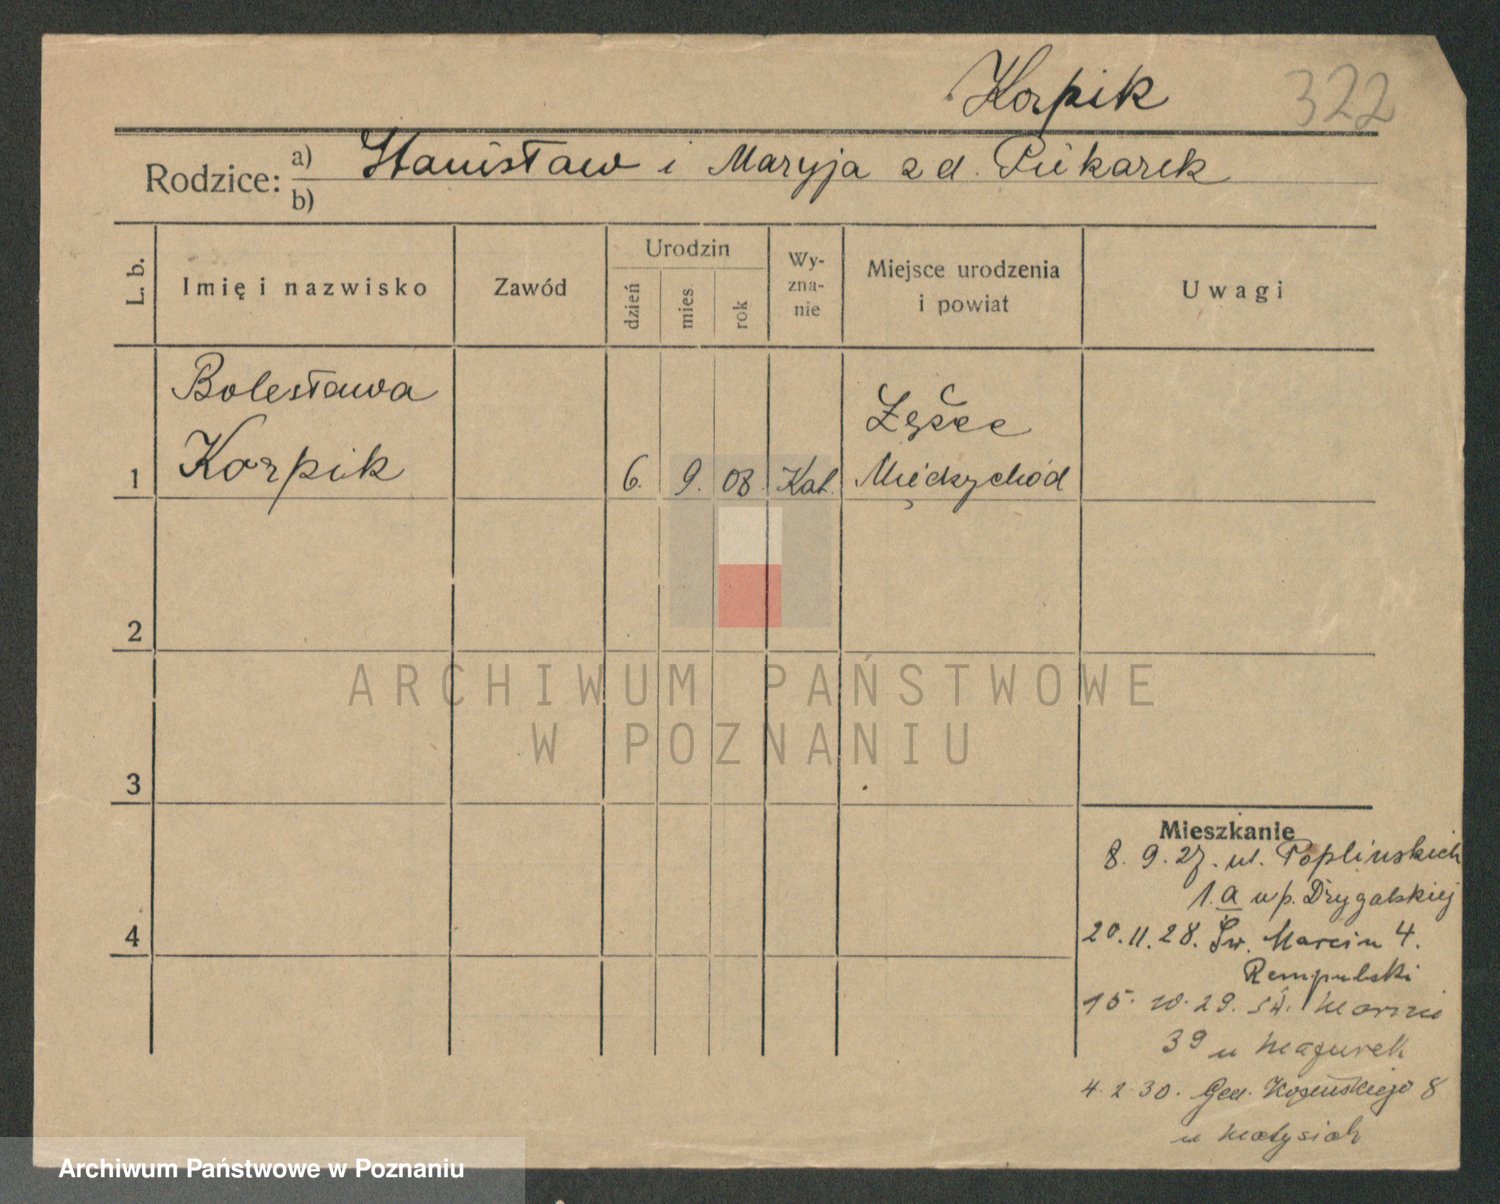 Korpik
322
Rodzice: a) Stanisław i Maryja z d. Piekarek
b)
L. b.
Imię i nazwisko
Zawód
Urodzin
dzień
mies.
rok
Wy-
zna-
nie
Miejsce urodzenia
i powiat
Uwagi
Bolesława
Korpik
1
6. 9. 08. Kat.
Międzychód
2
ARCHIWUM PAŃSTWOWE
W POZNANIU
3
Mieszkanie
8. 9. 27. ul. Poplińskich
1. a u p. Drygalskiej
4
20. 11. 28. Św. Marcin 4.
Rempulski
15. 10. 29. św. Marcin
39 u Mazurek
4. 2. 30. Gen. Kosińskiego 8
u Matysiak
Archiwum Państwowe w Poznaniu